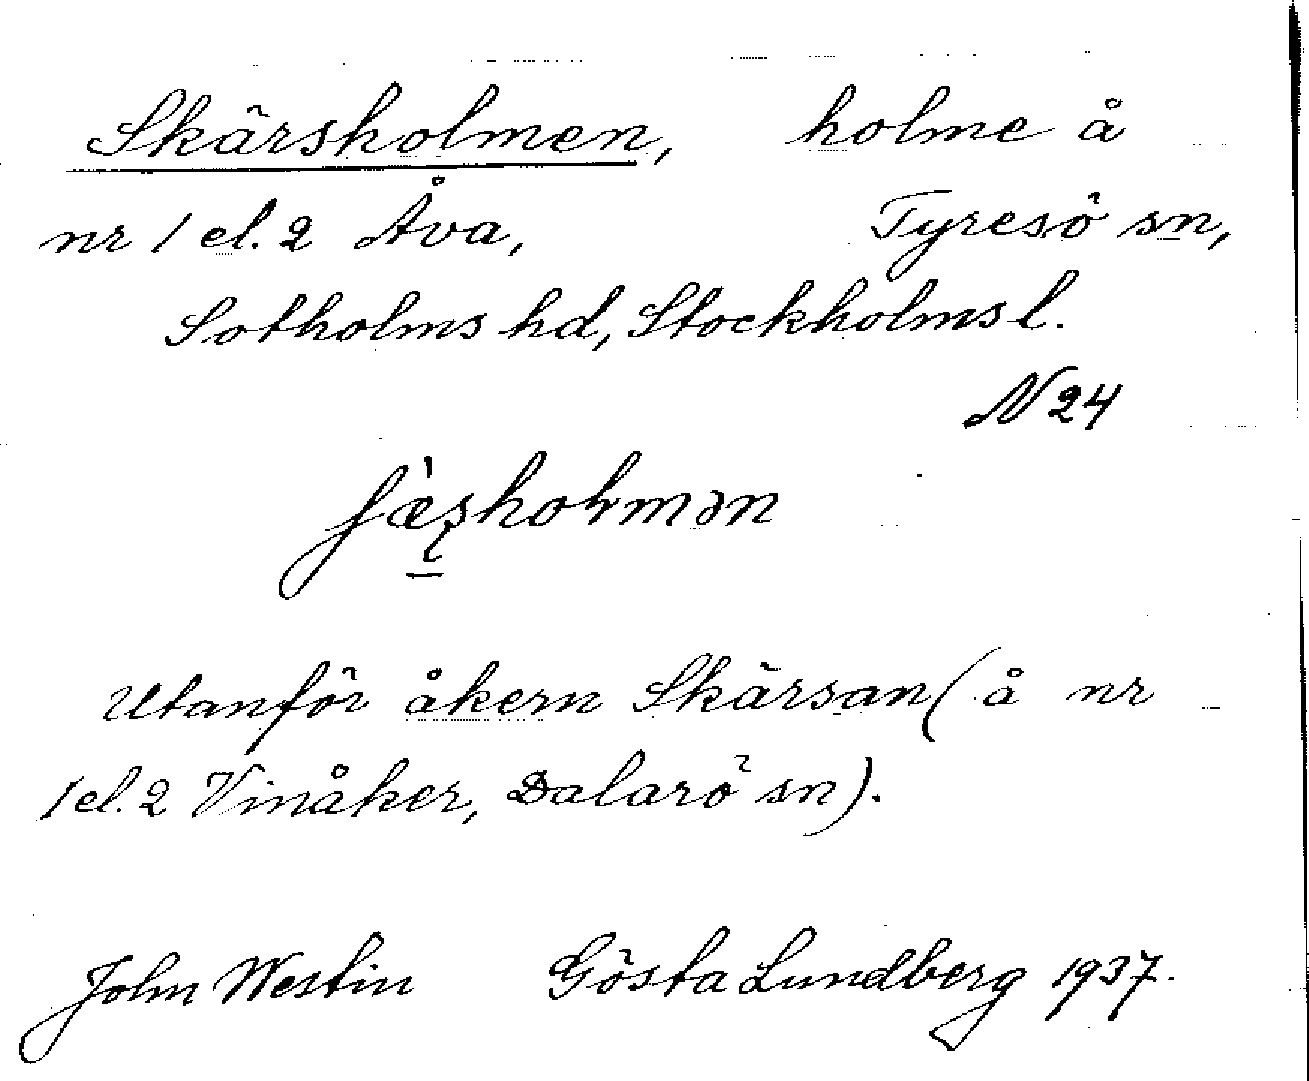 Skärsholmen, holme å
nr 1 el. 2 Åva, Tyresö sn,
Sotholms hd, Stockholms l.
N 24
Utanför åkern Skärsan (å nr
1 el. 2 Vinåker, Dalarö sn).
John Westin Gösta Lundberg 1937.